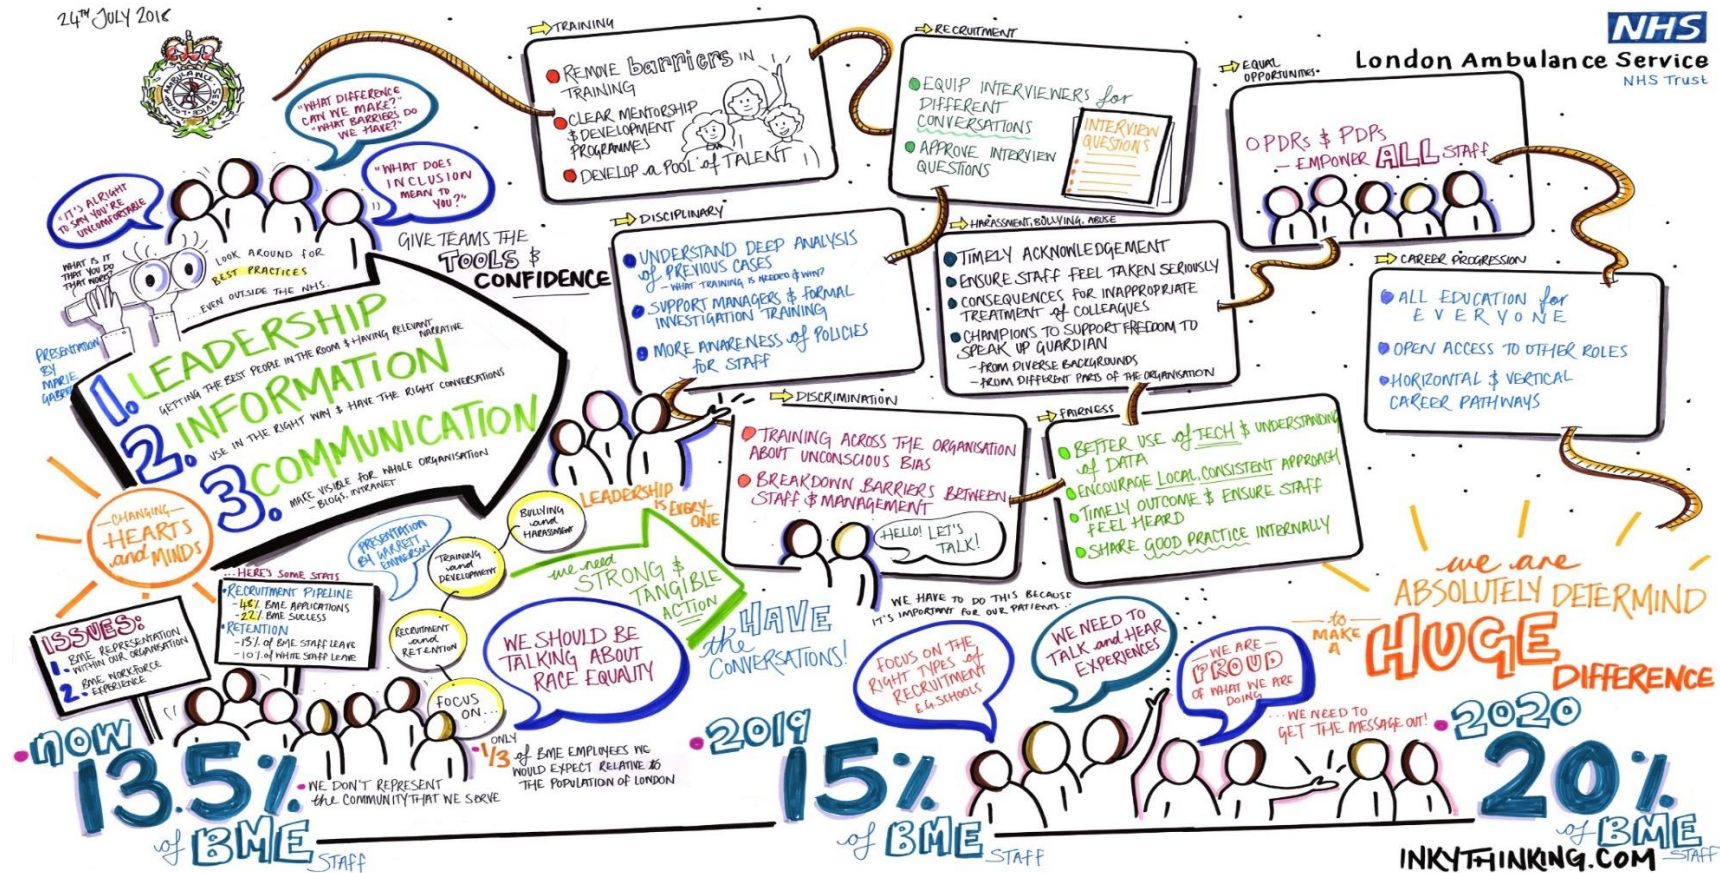 24TH JULY 2018
LONDON AMBULANCE SERVICE
NHS
London Ambulance Service
NHS Trust
"WHAT DIFFERENCE
CAN WE MAKE?"
"WHAT BARRIERS DO
WE HAVE?"
"IT'S ALRIGHT
TO SAY YOU'RE
UNCOMFORTABLE
"WHAT DOES
INCLUSION
MEAN TO
YOU?"
WHAT IS IT
THAT YOU DO
THAT WORKS?
LOOK AROUND for
BEST PRACTICES
...EVEN OUTSIDE THE NHS.
GIVE TEAMS THE
TOOLS &
CONFIDENCE
PRESENTATION
BY
MARIE
1. LEADERSHIP
GETTING THE BEST PEOPLE IN THE ROOM & HAVING RELEVANT
NARRATIVE
2. INFORMATION
USE IN THE RIGHT WAY & HAVE THE RIGHT CONVERSATIONS
3. COMMUNICATION
MAKE VISIBLE FOR WHOLE ORGANISATION
- BLOGS, INTRANET
TRAINING
REMOVE barriers IN
TRAINING
CLEAR MENTORSHIP
& DEVELOPMENT
PROGRAMMES
DEVELOP a POOL of TALENT
RECRUITMENT
EQUIP INTERVIEWERS for
DIFFERENT
CONVERSATIONS
APPROVE INTERVIEW
QUESTIONS
INTERVIEW
QUESTIONS
EQUAL
OPPORTUNITIES.
OPDRS & PDPs
- EMPOWER ALL STAFF
DISCIPLINARY
UNDERSTAND DEEP ANALYSIS
of PREVIOUS CASES
- WHAT TRAINING is NEEDED & WHY?
SUPPORT MANAGERS & FORMAL
INVESTIGATION TRAINING
MORE AWARENESS of POLICIES
for STAFF
HARASSMENT, BULLYING, ABUSE
TIMELY ACKNOWLEDGEMENT
ENSURE STAFF FEEL TAKEN SERIOUSLY
CONSEQUENCES FOR INAPPROPRIATE
TREATMENT of COLLEAGUES
CHAMPIONS TO SUPPORT FREEDOM TO
SPEAK UP GUARDIAN
- FROM DIVERSE BACKGROUNDS
- FROM DIFFERENT PARTS OF THE ORGANISATION
CAREER PROGRESSION
ALL EDUCATION for
EVERYONE
OPEN ACCESS TO OTHER ROLES
HORIZONTAL & VERTICAL
CAREER PATHWAYS
DISCRIMINATION
TRAINING ACROSS THE ORGANISATION
ABOUT UNCONSCIOUS BIAS
BREAKDOWN BARRIERS BETWEEN
STAFF & MANAGEMENT
HELLO! LET'S
TALK!
FAIRNESS
BETTER USE of TECH & UNDERSTANDING
of DATA
ENCOURAGE LOCAL, CONSISTENT APPROACH
TIMELY OUTCOME & ENSURE STAFF
FEEL HEARD
SHARE GOOD PRACTICE INTERNALLY
LEADERSHIP
IS EVERY-
ONE
- CHANGING -
HEARTS
and MINDS
PRESENTATION
BY GARRETT
EMMERSON!
BULLYING
and
HARASSMENT
TRAINING
and
DEVELOPMENT
RECRUITMENT
and
RETENTION
FOCUS
ON...
we need
STRONG &
TANGIBLE
ACTION
...HERE'S SOME STATS
RECRUITMENT PIPELINE
- 48% BME APPLICATIONS
- 22% BME SUCCESS
RETENTION
- 15% of BME STAFF LEAVE
- 10% of WHITE STAFF LEAVE
ISSUES:
1. BME REPRESENTATION
WITHIN OUR ORGANISATION
2. BME WORKFORCE
EXPERIENCE
WE SHOULD BE
TALKING ABOUT
RACE EQUALITY
HAVE
the
CONVERSATIONS!
WE HAVE TO DO THIS BECAUSE
IT'S IMPORTANT FOR OUR PATIENTS...
FOCUS ON THE
RIGHT TYPES of
RECRUITMENT
E.G. SCHOOLS
WE NEED TO
TALK and HEAR
EXPERIENCES
- WE ARE -
PROUD
OF WHAT WE ARE
DOING
...WE NEED TO
GET THE MESSAGE OUT!
we are
ABSOLUTELY DETERMIND
to
MAKE
A
HUGE
DIFFERENCE
NOW
13.5%
of BME
STAFF
WE DON'T REPRESENT
the COMMUNITY THAT WE SERVE
ONLY
1/3 of BME EMPLOYEES WE
WOULD EXPECT RELATIVE to
THE POPULATION OF LONDON
2019
15%
of BME
STAFF
2020
20%
of BME
STAFF
INKYTHINKING.COM